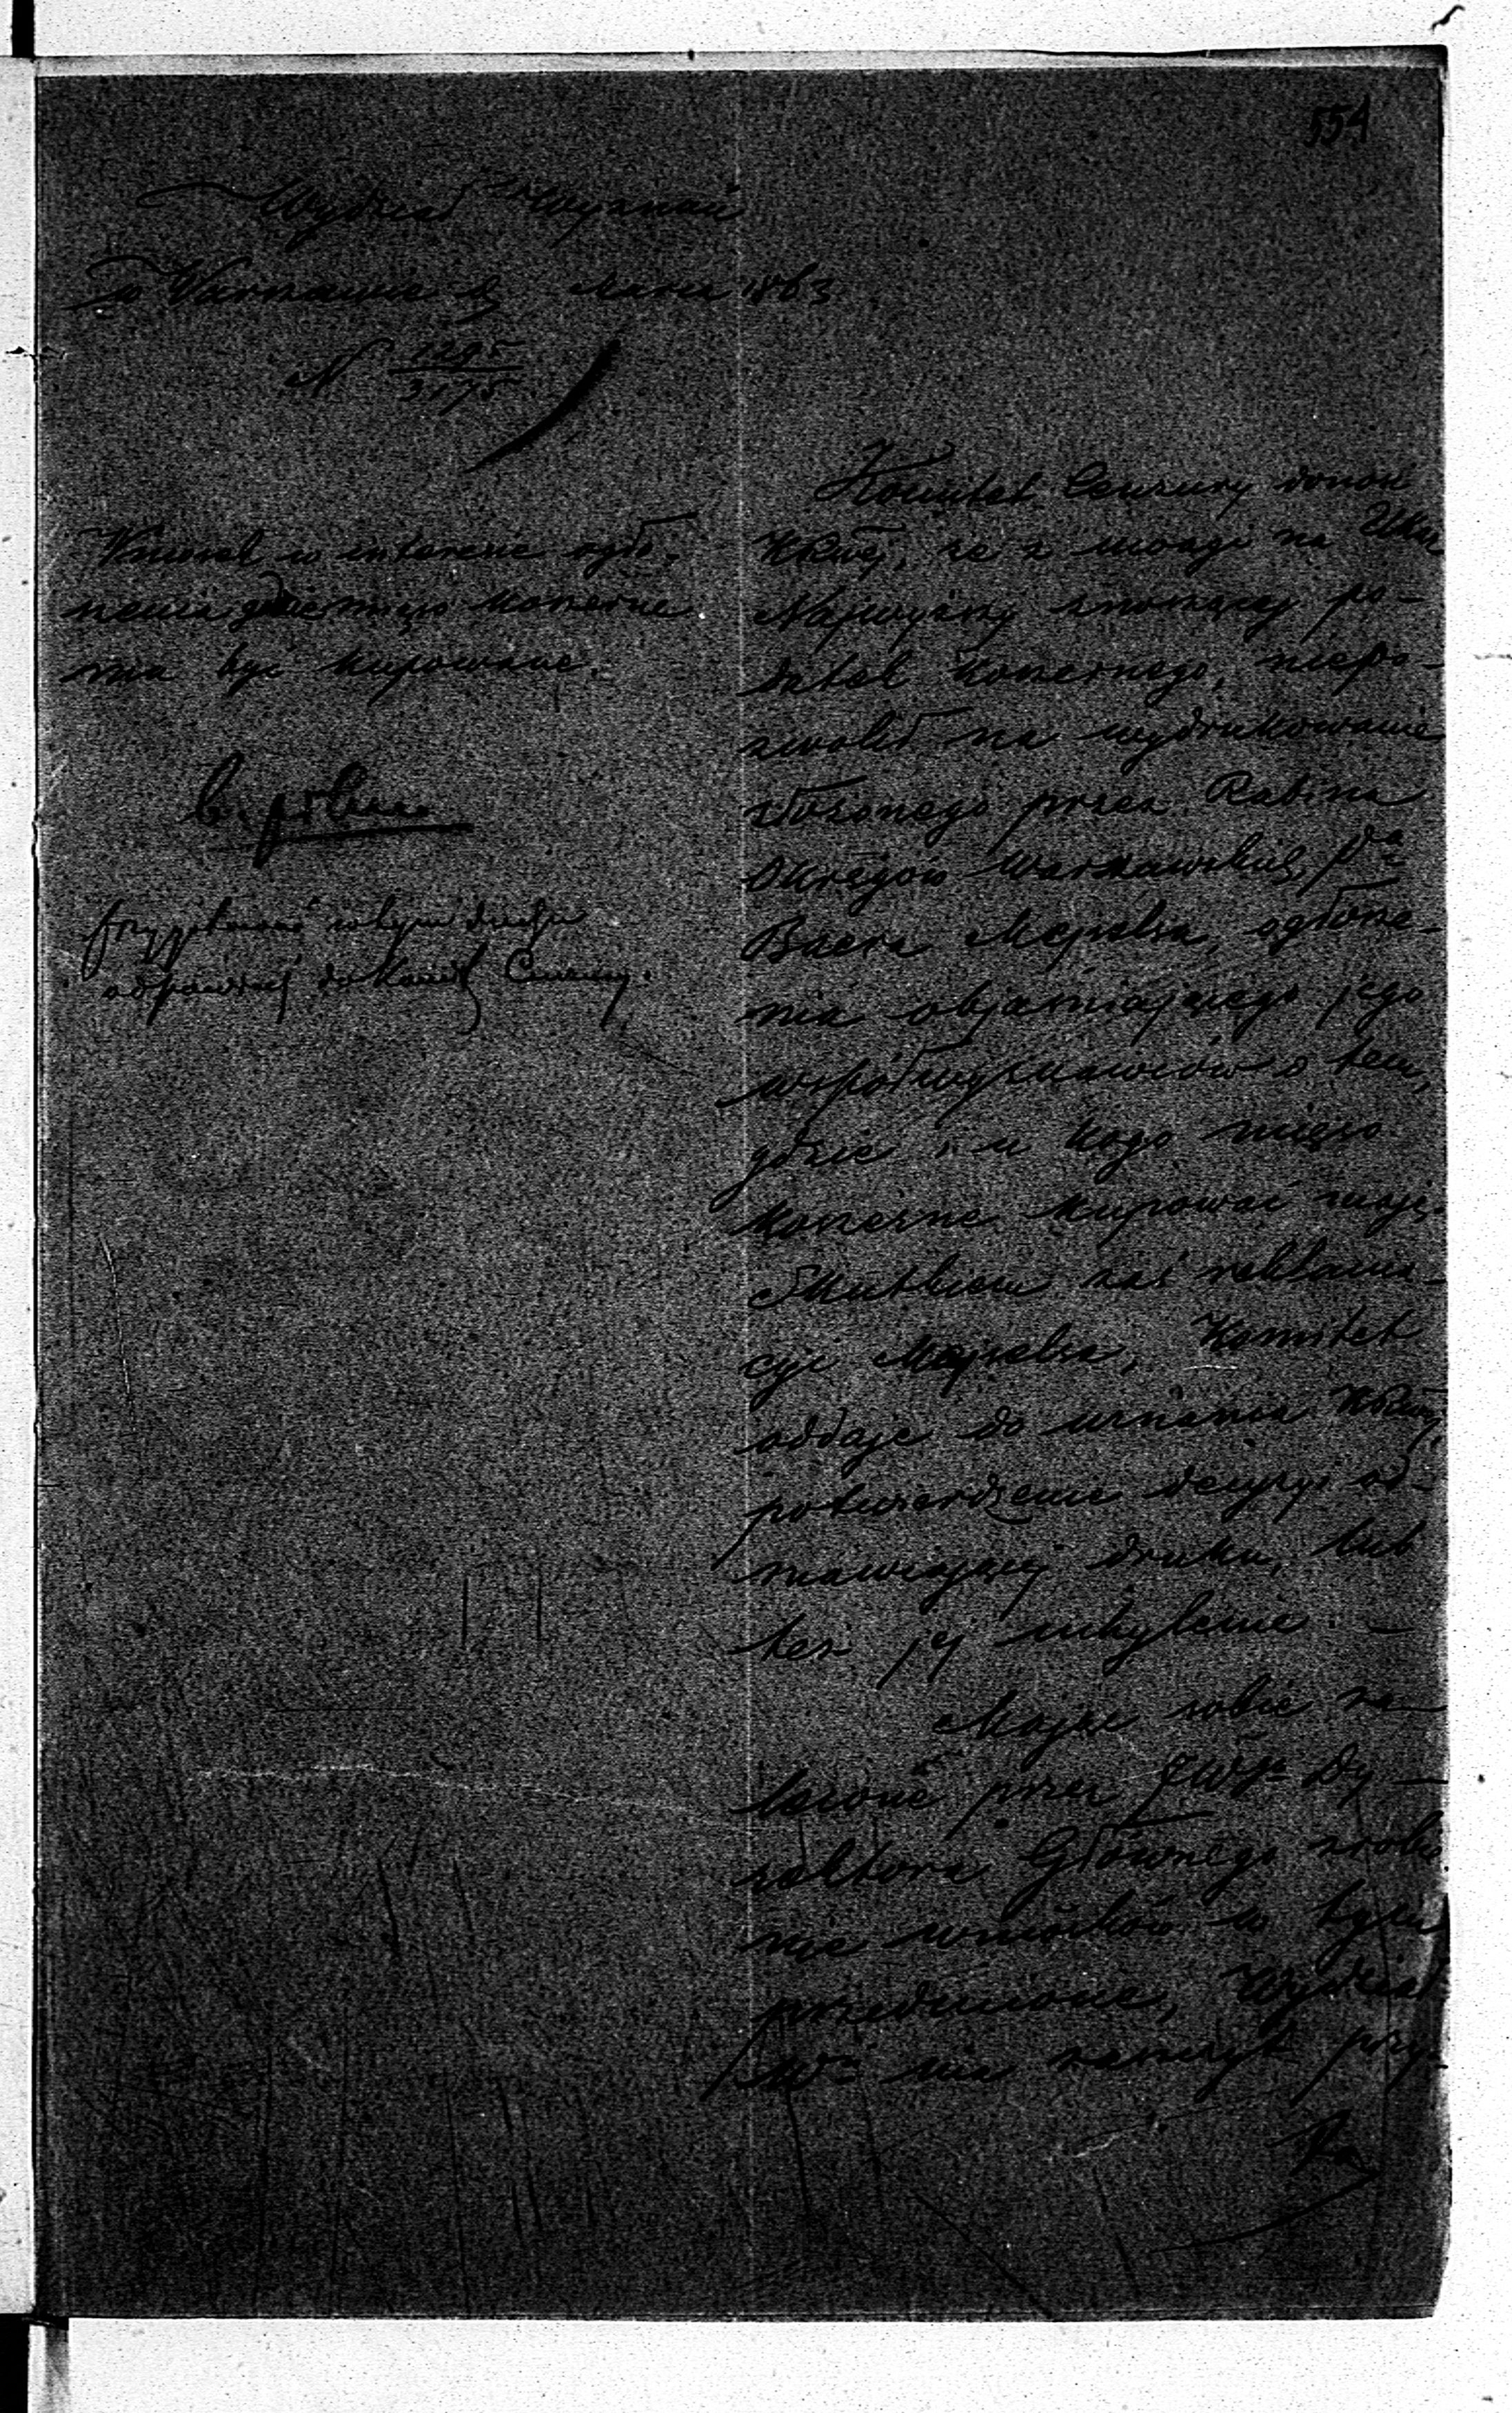 554
Wydział Wyznań
w Warszawie d. Marca 1863
N 1295/3175
Wniosek w interesie ogło-
szenia gdzie mięso koszerne
ma być kupowane.
odpowiedź do Komit. Cenzury.
Komitet Cenzury donosi
KRWej, że z uwagi na Ukaz
Najwyższy znoszący po-
datek koszernego, niepo-
zwolił na wydrukowanie
złożonego przez Rabina
Okręgów Warszawskich, Pna
Baera Majzelsa, ogłosze-
nia objaśniającego jego
współwyznawców o tem,
gdzie i u kogo mięso
koszerne kupować mają.
Skutkiem zaś reklama-
cyi Majzelsa, Komitet
oddaje do uznania KRWej,
potwierdzenie decyzyi od-
mawiającej druku, lub
też jej uchylenie. –
Mając sobie za-
lecone przez JWPa Dy-
rektora Głównego zrobie-
nie wniosków w tym
przedmiocie, Wydział
Wń ma zaszczyt przy-